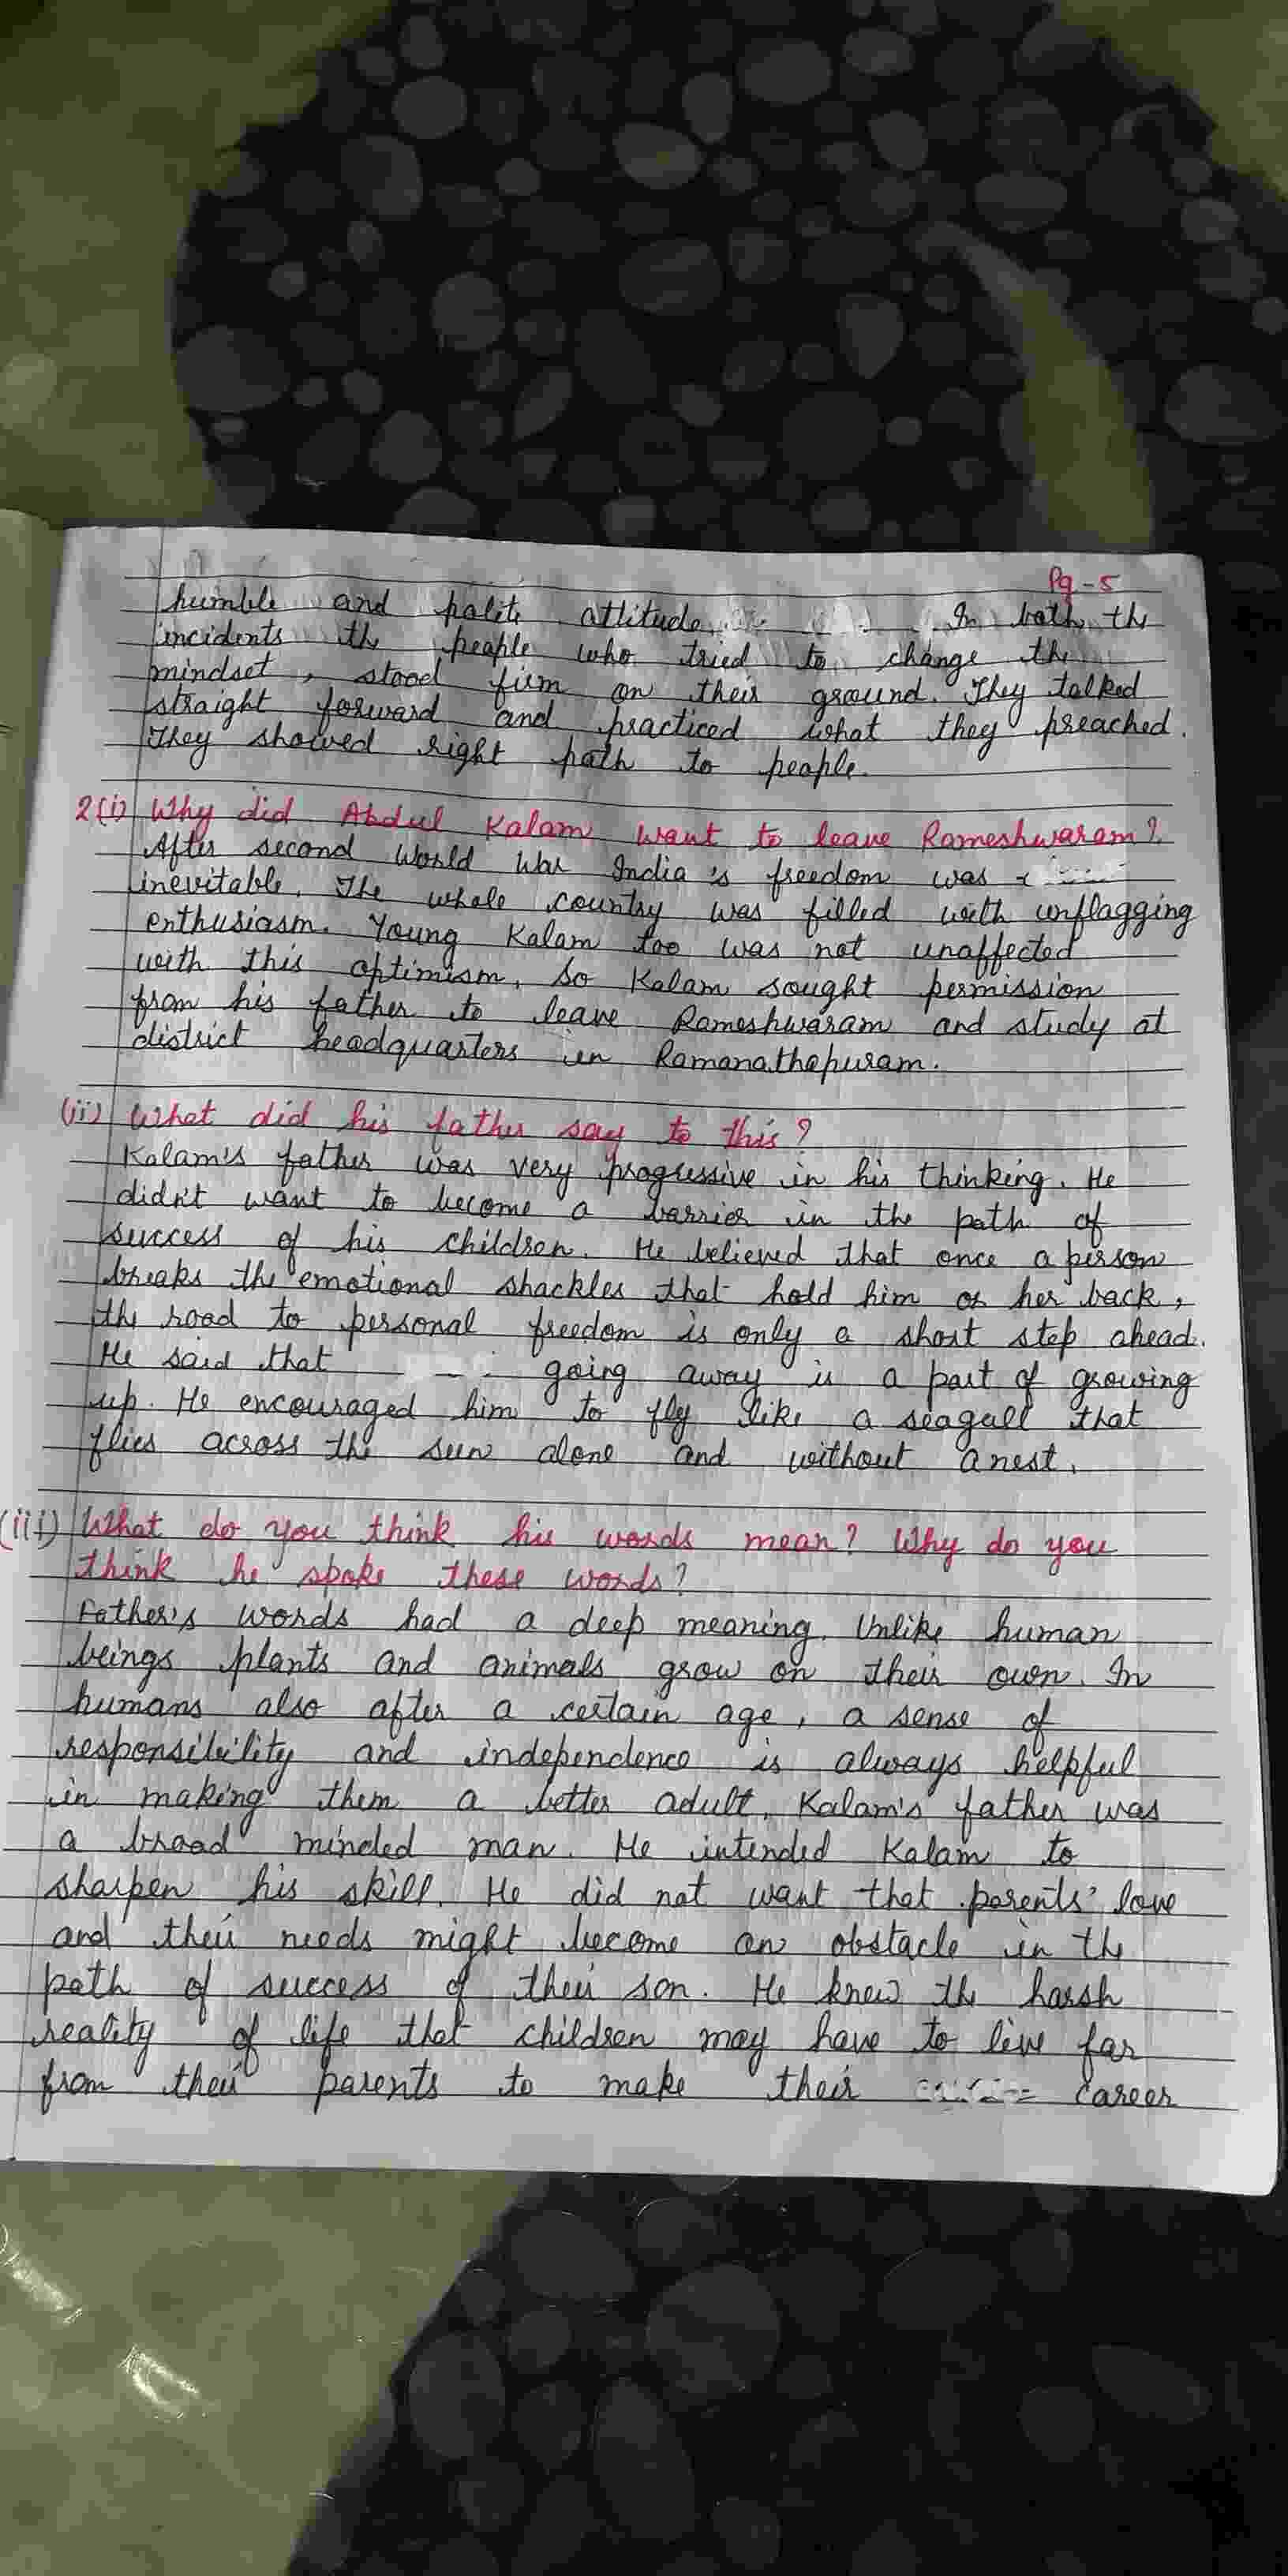 Pg-5
humble and polite attitude. In both the
incidents the people who tried to change the
mindset, stood firm on their ground. They talked
straight forward and practiced what they preached.
They showed right path to people.
2(i) Why did Abdul Kalam want to leave Rameshwaram?
After second World War India's freedom was
inevitable. The whole country was filled with unflagging
enthusiasm. Young Kalam too was not unaffected
with this optimism, So Kalam sought permission
from his father to leave Rameshwaram and study at
district headquarters in Ramanathapuram.
(ii) What did his father say to this?
Kalam's father was very progressive in his thinking. He
didn't want to become a barrier in the path of
success of his children. He believed that once a person
breaks the emotional shackles that hold him or her back,
the road to personal freedom is only a short step ahead.
He said that going away is a part of growing
up. He encouraged him to fly like a seagull that
flies across the sun alone and without a nest.
(iii) What do you think his words mean? Why do you
think he spoke these words?
Father's words had a deep meaning. Unlike human
beings plants and animals grow on their own. In
humans also after a certain age, a sense of
responsibility and independence is always helpful
in making them a better adult. Kalam's father was
a broad minded man. He intended Kalam to
sharpen his skill. He did not want that parents' love
and their needs might become an obstacle in the
path of success of their son. He knew the harsh
reality of life that children may have to live far
from their parents to make their career